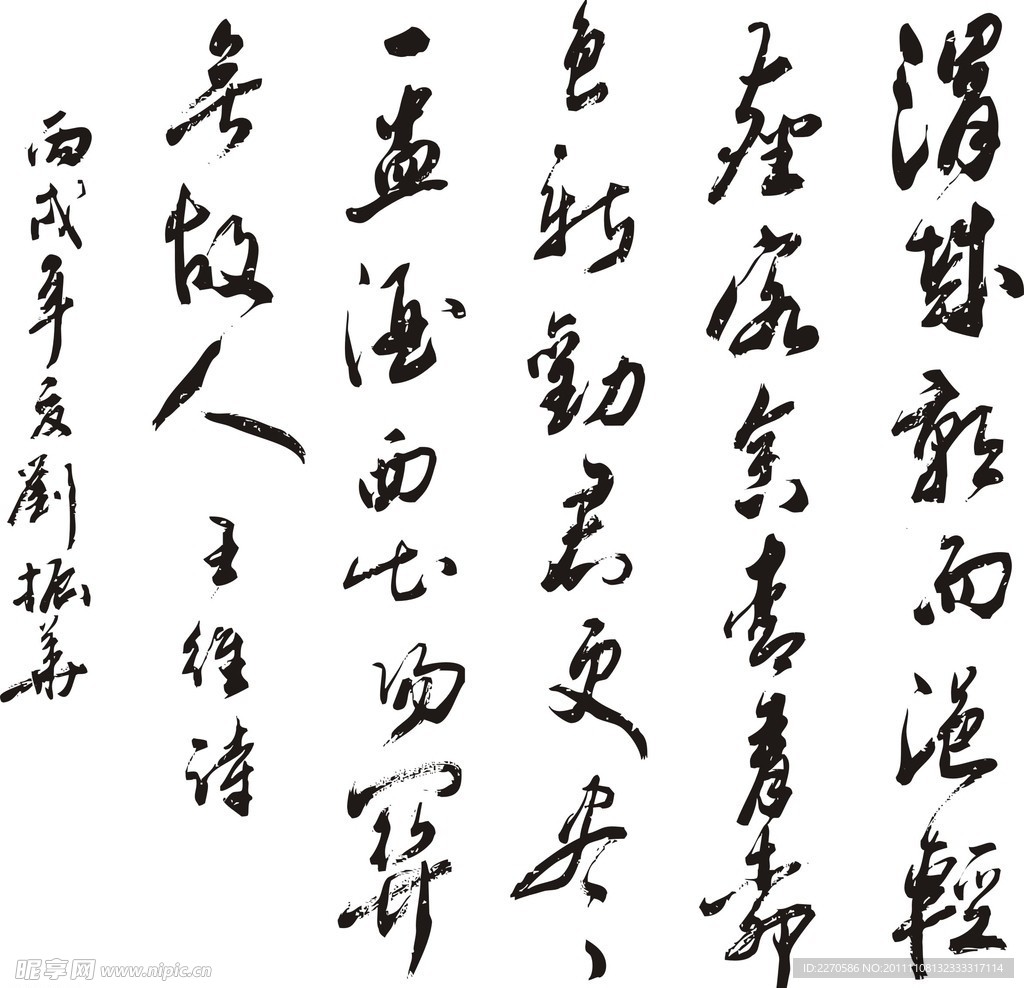 渭城朝雨浥輕
塵客舍青青柳
色新勸君更尽
一盃酒西出陽關
無故人 王維詩
丙戌年夏劉振華
昵享网 www.nipic.cn
ID:2270586 NO:20111108132333317114